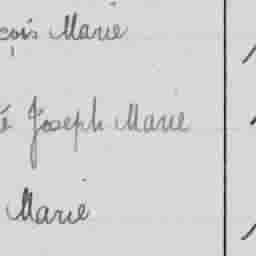 çois Marie
é Joseph Marie
Marie